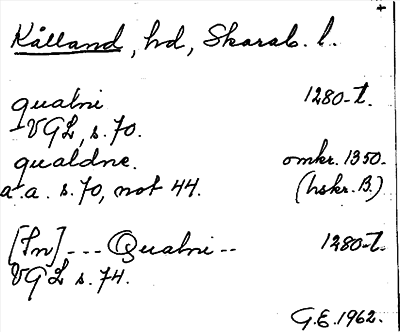 Kålland, hd, Skarab. l.
qualni 1280-t.
VGL, s. 70.
qualdne. omkr. 1350.
a.a. s. 70, not 44. (hskr. B.)
[In] --- Qualni -- 1280-t.
VGL s. 74.
G.E. 1962.